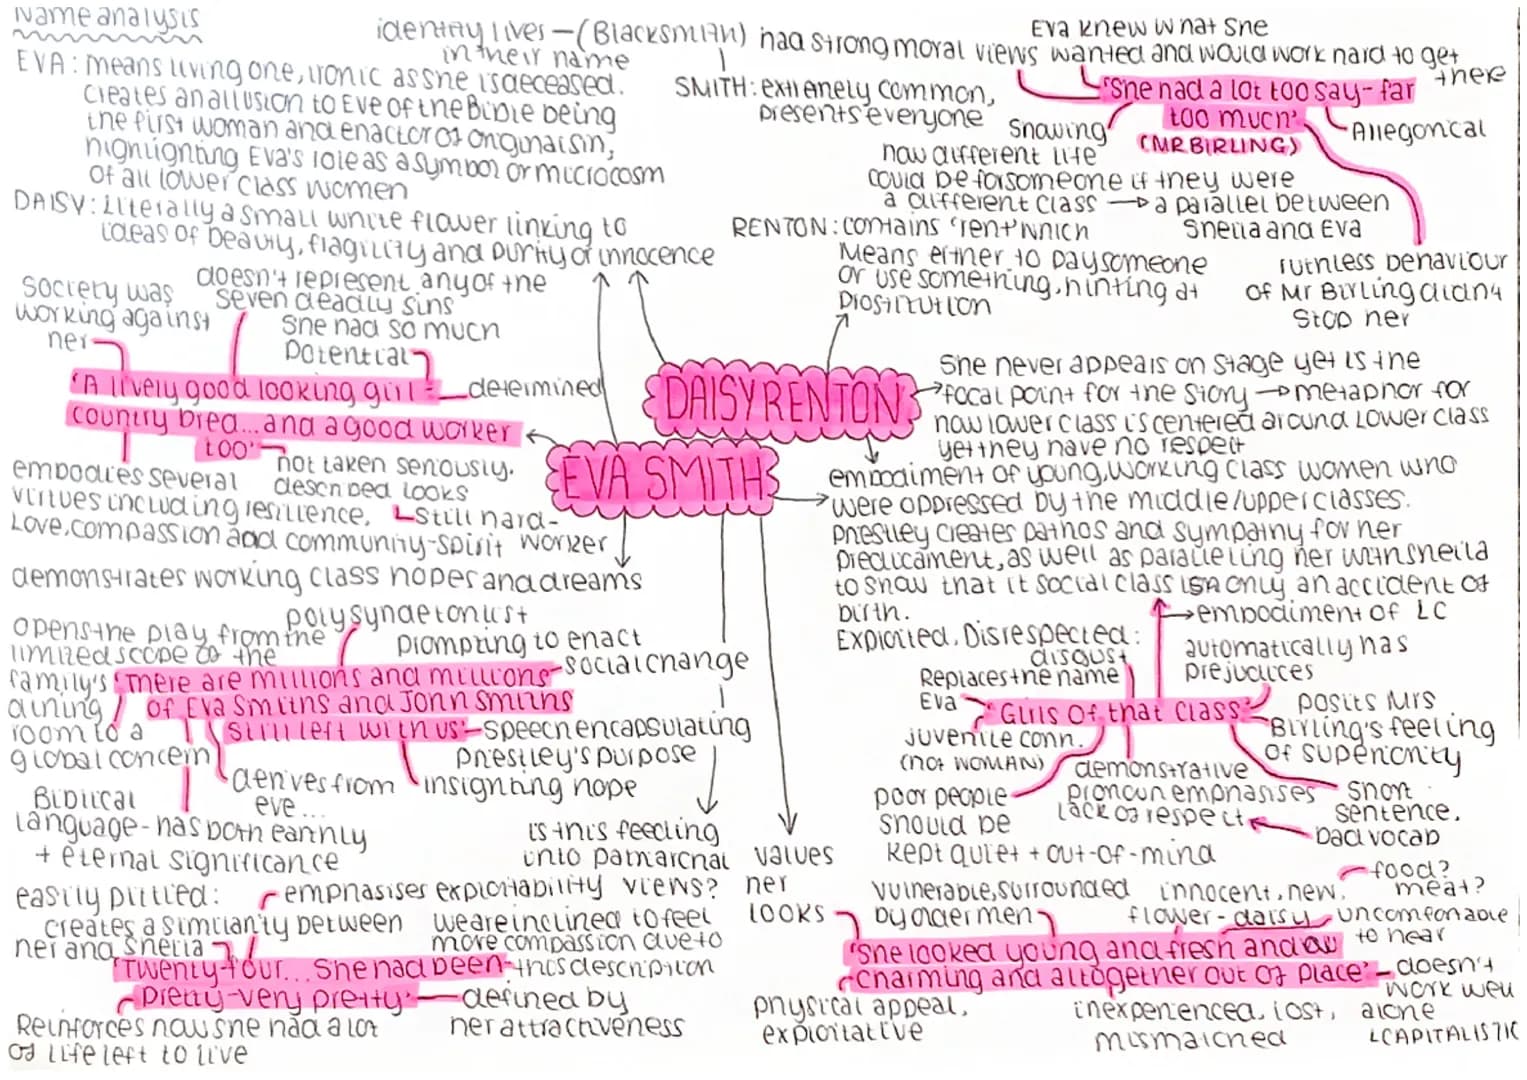 Name analysis
EVA: means living one, ironic as she is deceased.
creates an allusion to Eve of the Bible being
the first woman and enactor of original sin,
highlighting Eva's role as a symbol or microcosm
of all lower class women
DAISY: Literally a small white flower linking to
ideas of beauty, flagility and purity of innocence
identity lives – (Blacksmith)
in their name
SMITH: extremely common,
presents everyone
Eva knew what she
had strong moral views wanted and would work hard to get
there
'She had a lot too say – far
too much'
(MR BIRLING)
Allegorical
Showing
how different life
could be for someone if they were
a different class → a parallel between
Sheila and Eva
ruthless behaviour
of Mr Birling didn't
stop her
RENTON: contains 'rent' which
Means either to pay someone
or use something, hinting at
prostitution
society was
working against
her
doesn't represent any of the
seven deadly sins
She had so much
potential
'A lively good looking girl -
determined
country bred...and a good worker
too'
embodies several
virtues including resilience,
Love, compassion and community-spirit
not taken seriously.
described looks
Still hard-
worker
DAISY RENTON
EVA SMITH
She never appears on stage yet is the
focal point for the story → metaphor for
how lower class is centered around Lower class
yet they have no respect
embodiment of young, working class women who
were oppressed by the middle/upper classes.
priestley creates pathos and sympathy for her
predicament, as well as paralleling her with sheila
to show that it social class is only an accident of
birth.
embodiment of LC
demonstrates working class hopes and dreams
opens the play from the
limited scope to the
family's
dining
room to a
global concern
polysyndeton list
prompting to enact
social change
'there are millions and millions
of Eva Smiths and John Smiths
still left with us'
speech encapsulating
priestley's purpose
derives from
eve...
insighting hope
Biblical
language - has both earthly
+ eternal significance
is this feeding
into patriarchal
views?
Exploited, Disrespected:
disgust
Replaces the name
Eva
automatically has
prejudices
'Girls Of that Class'
juvenile conn.
(not WOMAN)
posits Mrs
Birling's feeling
of superiority
poor people
should be
kept quiet + out-of-mind
demonstrative
pronoun emphasises
lack of respect
short
sentence.
bad vocab
easily pitied:
emphasises exploitability
creates a similarity between
her and Sheila
we are inclined to feel
more compassion due to
this description
'Twenty-four... She had been
pretty-very pretty'
defined by
her attractiveness
Reinforces how she had a lot
of life left to live
values
her
looks
vulnerable, surrounded
by older men
innocent, new,
flower - daisy
food?
meat?
uncomfortable
to hear
'She looked young and fresh and
charming and altogether out of place'
physical appeal,
exploitative
inexperienced, lost,
mismatched
doesn't
work well
alone
CAPITALISTIC